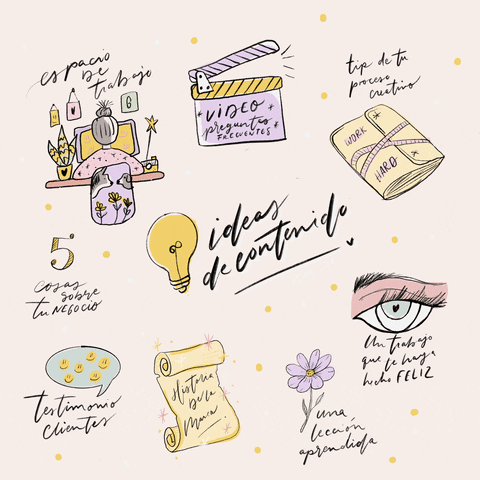 espacio
de
trabajo
G
VIDEO
preguntas
FRECUENTES
tip de tu
proceso
creativo
WORK
HARD
ideas
de contenido
5
cosas
sobre
tu NEGOCIO
Un trabajo
que te haya
hecho FELIZ
testimonio
clientes
Historia
De la
Marca
una
lección
aprendida